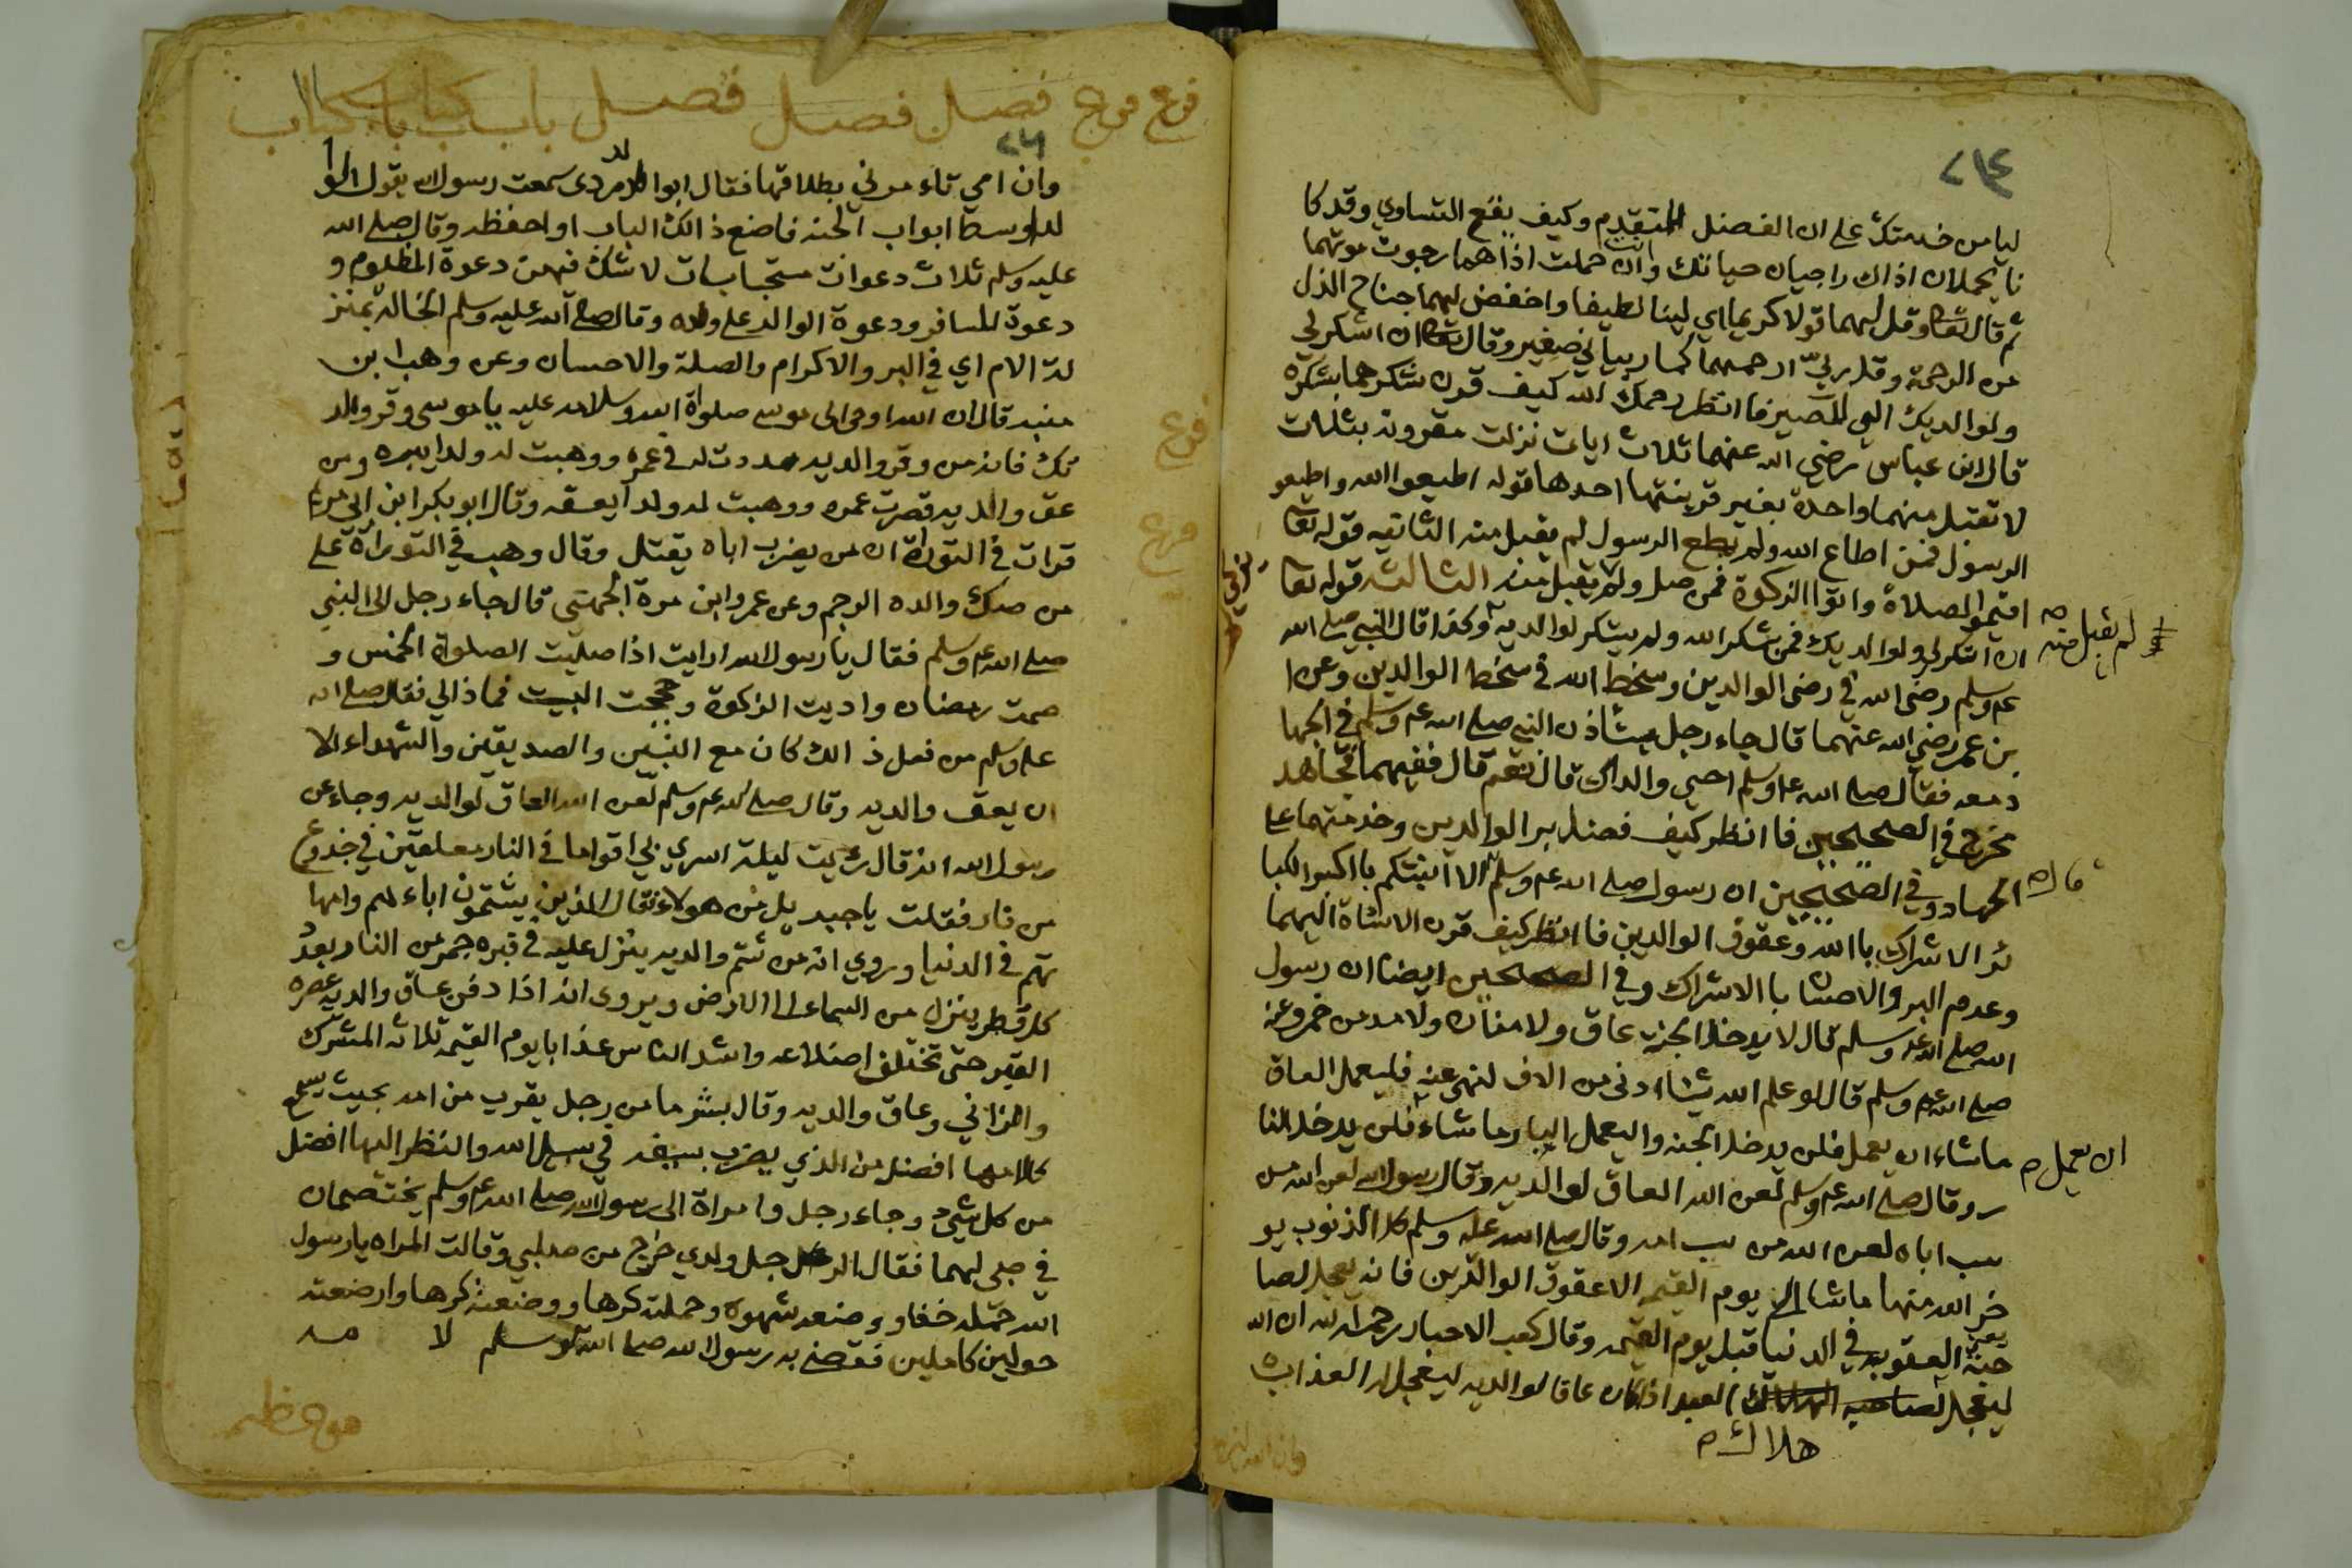 ٢١٤
ليا من خدمتك على ان الفضل للمتقدم وكيف يقع التساوي وقد كا
نا يحملان اذاك راجيان حياتك وانت ان حملت اذاهما رجوت موتهما
ثم قال تعا وقل لهما قولا كريما اي لينا لطيفا واخفض لهما جناح الذل
من الرحمة وقل ربي ارحمهما كما ربياني صغير وقال تعا ان اشكر لي
ولوالديك الي المصير فا انظر رحمك الله كيف قرن شكرهما بشكره
قال ابن عباس رضي الله عنهما ثلاث ايات نزلت مقرونة بثلاث
لا تقبل منهما واحدة بغير قرينتها احدها قوله اطيعوا الله واطيعو
الرسول فمن اطاع الله ولم يطع الرسول لم يقبل منه الثانيه قوله تعا
اقيموا الصلاة واتوا الزكوة فمن صلى ولم لم يقبل منه الثالثه قوله تعا
ان اشكر لي ولوالديك فمن شكر الله ولم يشكر لوالديه وكذا قال النبي صلى الله
لم يقبل منه ص
عم وسلم رضى الله في رضى الوالدين وسخط الله في سخط الوالدين وعن ا
بن عمر رضي الله عنهما قال جاء رجل يشأذن النبي صلى الله عم وسلم في الجها
د معه فقال صلى الله عم وسلم احي والداك قال نعم قال ففيهما فجاهد
مخرج في الصحيحين فا انظر كيف فضل بر الوالدين وخدمتهما على
الجهاد وفي الصحيحين ان رسول صلى الله عم وسلم الا انبئكم با اكبر الكبا
قال ص
ئر الا شراك با الله وعقوق الوالدين فا انظر كيف قرن الاشاة اليهما
وعدم البر والاحسان با الاشراك وفي الصحيحين ايضا ان رسول
الله صلى الله عم وسلم قال لا يدخل الجنة عاق ولا منان ولا مدمن خمر وعنه
صلى الله عم وسلم قال لو علم الله شيئا ادنى من الاف لنهى عنه فليعمل العاق
ما شاء ان يعمل فلن يدخل الجنه واليعمل البار ما شاء فلن يدخل النا
ان يعمل ص
ر وقال صلى الله عم وسلم لعن الله العاق لوالديه وقال رسول الله لعن الله من
سب اباه لعن الله من سب امه وقال صلى الله عليه وسلم كل الذنوب يو
خر الله منها ما شا الى يوم القيمه الا عقوق الوالدين فانه يعجل لصا
حبه العقوبه في الدنيا قبل يوم القيمه وقال كعب الاحبار رحمه الله ان الله
ليعجل العبد اذا كان عاقا لوالديه ليعجل له العذاب
هلاك ص
فرع فرع فصل فصل فصل باب كتاب باب كتاب
وان امي تاء مرني بطلاقها فقال ابوا الدردى سمعت رسول الله يقول الوا
لد اوسط ابواب الجنه فاضع ذالك الباب او احفظه وقال صلى الله
عليه وسلم ثلاث دعوات مستجابات لا شك فيهن دعوة المظلوم و
دعوة المسافر ودعوة الوالد على ولده وقال صلى الله عليه وسلم الخاله بمنز
لة الام اي في البر والاكرام والصلة والاحسان وعن وهب ابن
منبه قال ان الله اوحى الى موسى صلواة الله وسلامه عليه يا موسى وقر والد
يك فانه من وقر والديه مددت له في عمره ووهبت له ولدا يبره ومن
عق والديه قصرت عمره ووهبت له ولدا يعقه وقال ابو بكر ابن ابي مريم
قرات في التوراة ان من يضرب اباه يقتل وقال وهب في التوراة على
من صك والده الرجم وعن عمرو ابن مرة الجهني قال جاء رجل الى النبي
صلى الله عم وسلم فقال يا رسول الله ارايت اذا صليت الصلوة الخمس و
صمت رمضان واديت الزكوة وحججت البيت فماذا لي فقال صلى الله
عليه وسلم من فعل ذالك كان مع النبين والصديقين والشهداء الا
ان يعق والديه وقال صلى الله عم وسلم لعن الله العاق لوالديه وجاء عن
رسول الله انه قال رئيت ليلة اسري بي اقواما في النار معلقين في جذوع
من نار فقلت يا جبريل من هولاء فقال الذين يشتمون اباء هم وامها
تهم في الدنيا وروي انه من شتم والديه ينزل عليه في قبره جمر من النار بعدد
كل قطر ينزل من السماء الى الارض ويروى انه اذا دفن عاق والديه عصره
القبر حتى تختلف اضلاعه واشد الناس عذابا يوم القيمه ثلاثه المشرك
والزاني وعاق والديه وقال بشر ما من رجل يقرب من امه بحيث يسمع
كلامها افضل من الذي يضرب بسيفه في سبيل الله والنظر اليها افضل
من كل شيء وجاء رجل وامراة الى رسول الله صلى الله عم وسلم يختصمان
في صبي لهما فقال الرجل ولدي خرج من صلبي وقالت المراه يا رسول
الله حمله خفا ووضعه شهوة وحملته كرها ووضعته كرها وارضعته
حولين كاملين فقضى به رسول الله صلى الله عم وسلم لا مه
فرع
فرع